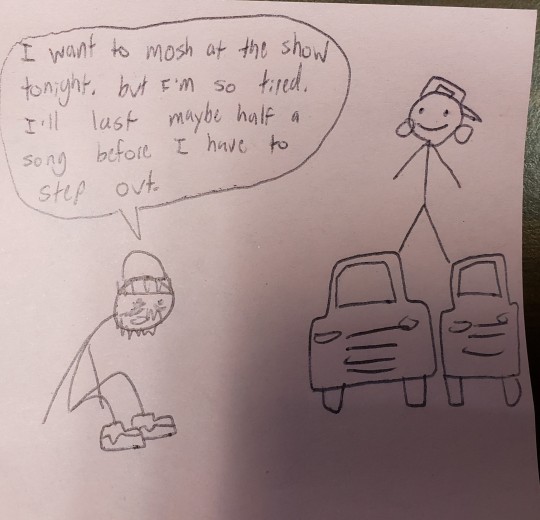 I want to mosh at the show
tonight, but I'm so tired.
I'll last maybe half a
song before I have to
step out.